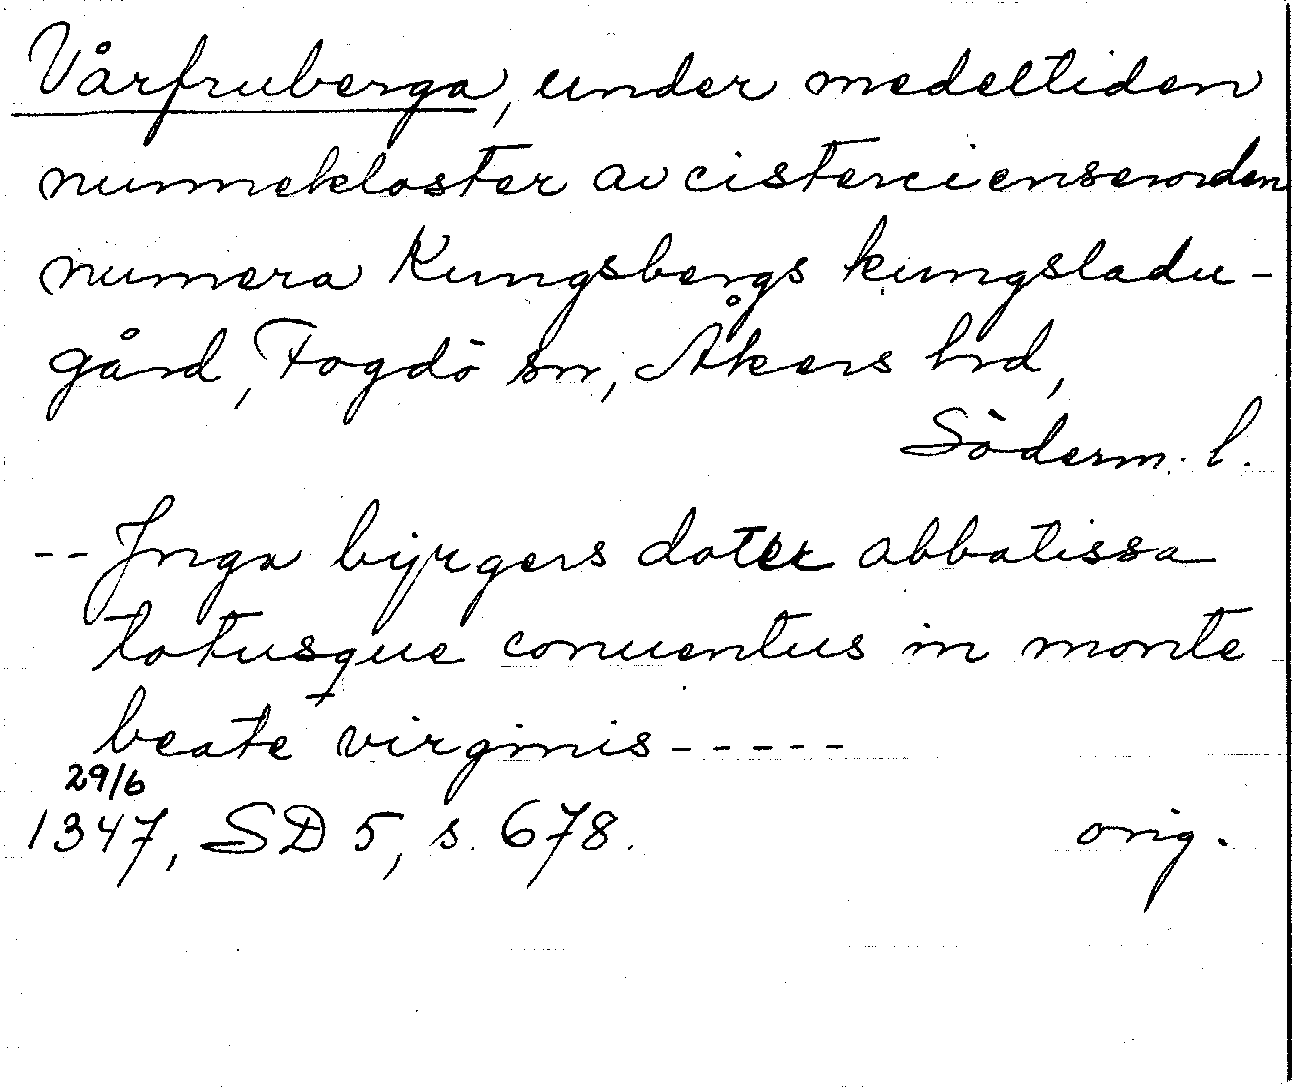 Vårfruberga, under medeltiden
nunnekloster av cistercienserorden
numera Kungsbergs kungsladu-
gård, Fogdö sn, Åkers hrd,
Söderm. l.
-- Jnga byrgers doter abbatissa
totusque conuentus in monte
beate virginis -----
29/6
1347, SD 5, s. 678. orig.